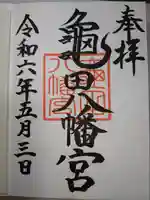 奉拝
亀田八幡宮
令和六年五月三日